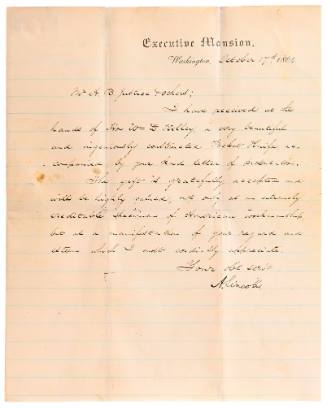 Executive Mansion,
Washington, October 17th 1864
Mr A. B. Justice
I have received at the
hands of Hon Wm D Kelley a very beautiful
and ingeniously constructed Pocket Knife ac-
companied by your kind letter of
The gift is gratefully accepted and
will be highly valued, not only as an extremely
creditable specimen of American workmanship
but as a manifestation of your regard and
esteem which I most cordially appreciate.
Your obt servt
A. Lincoln